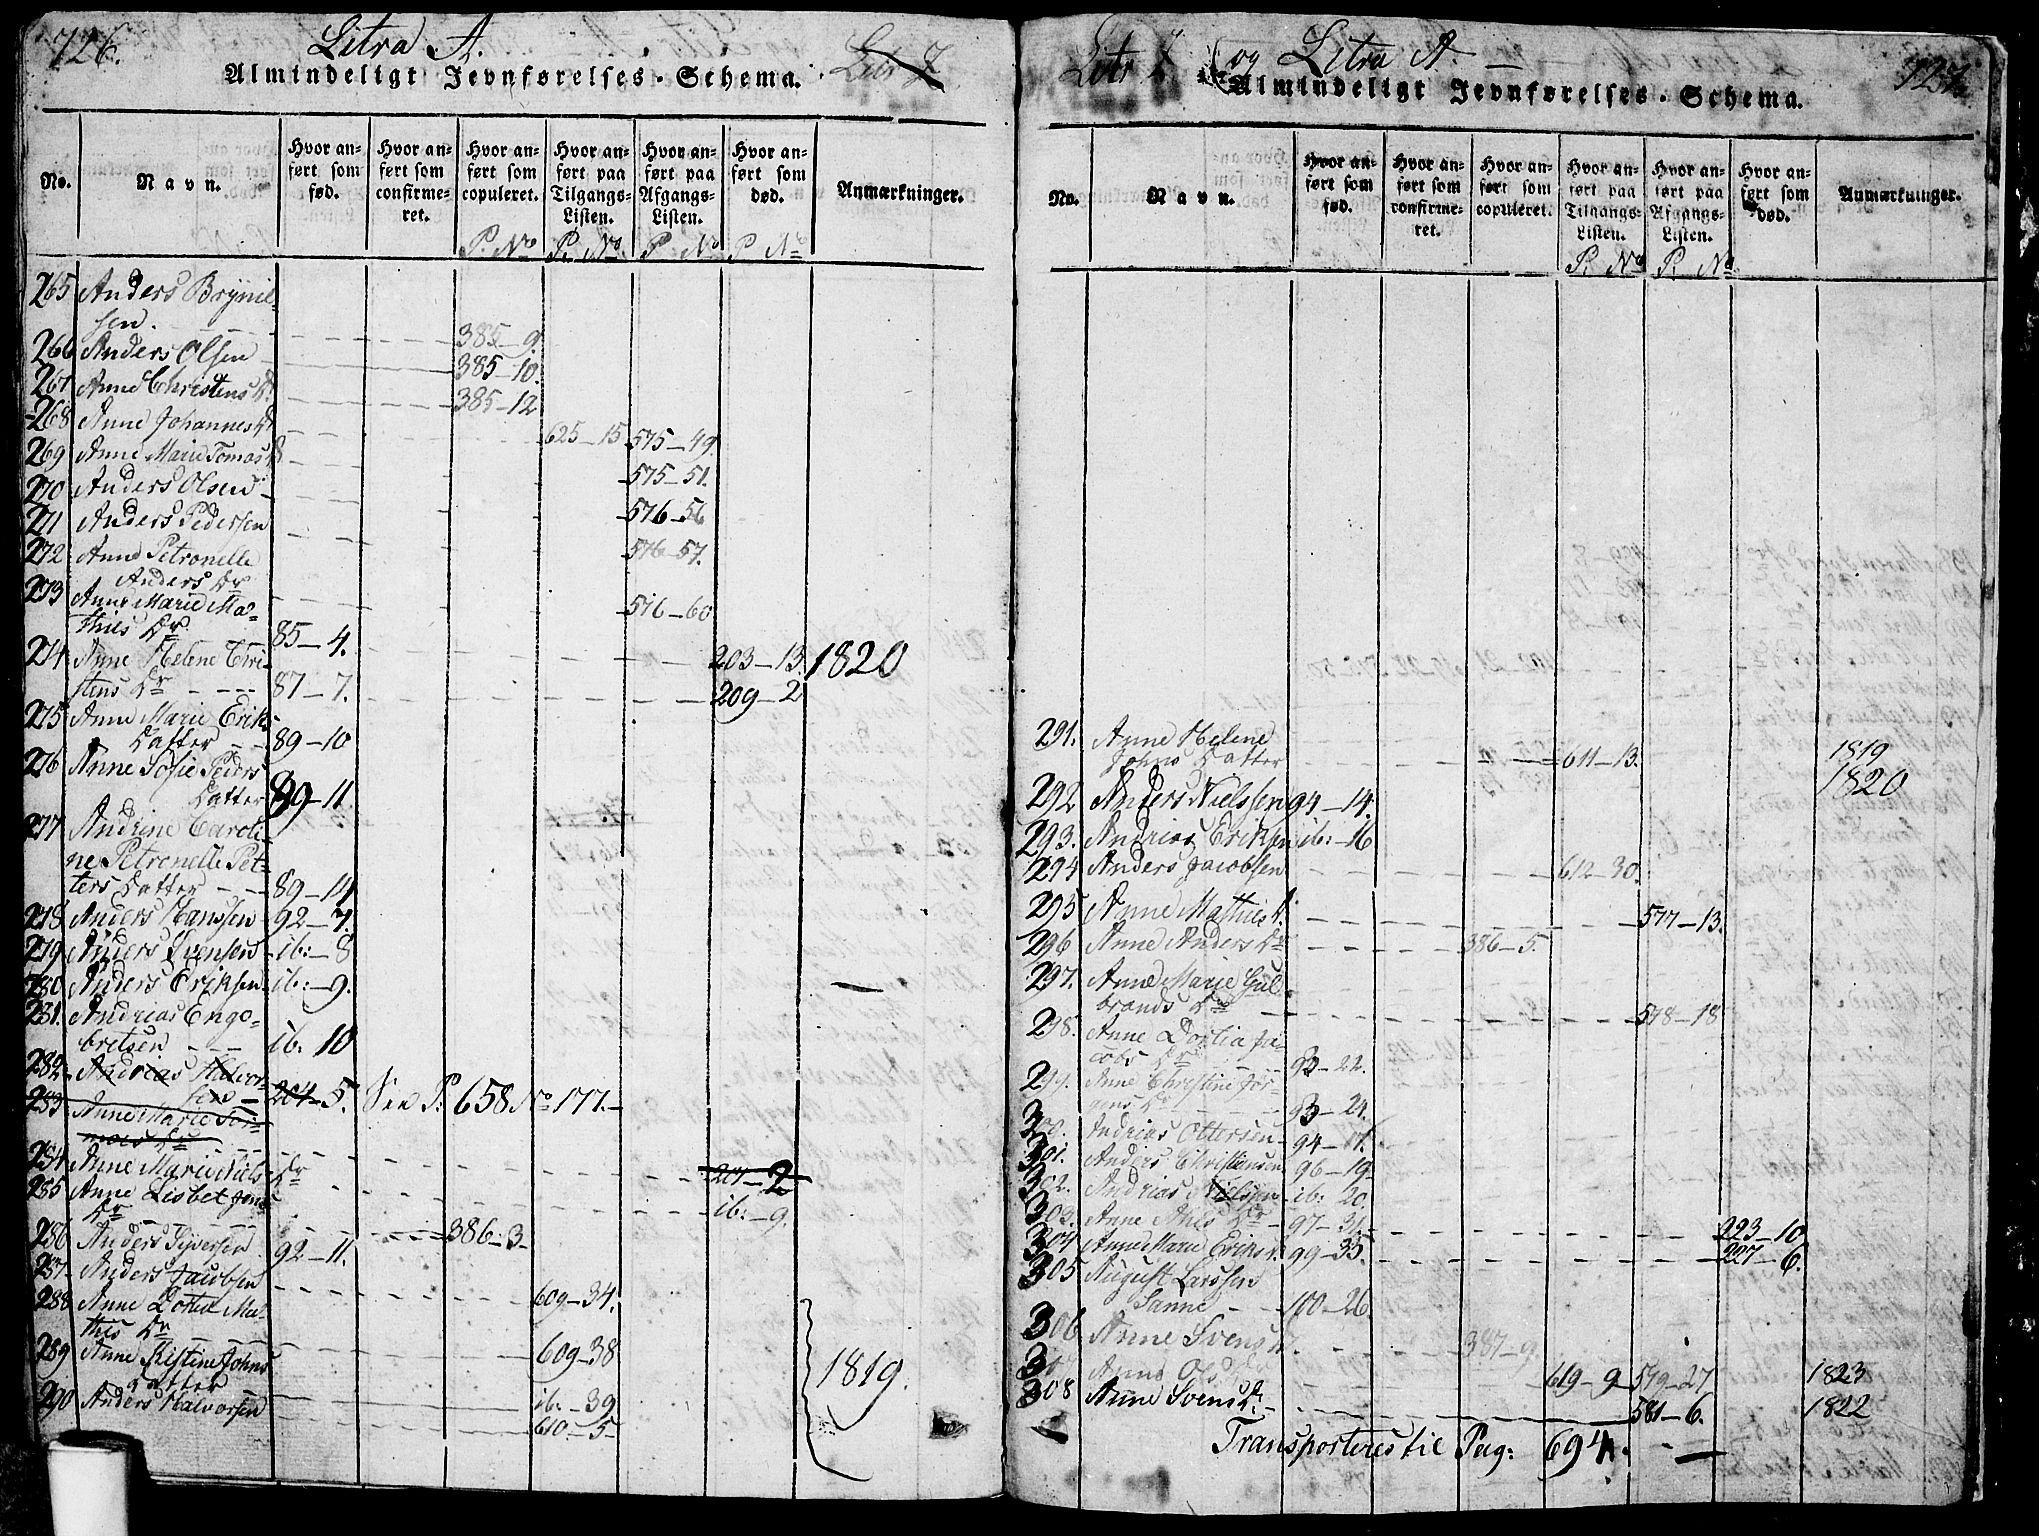 726.
Litra A.
Litr Z
Almindeligt Jevnførelses-Schema.
No.
Navn.
Hvor anført som fød.
Hvor anført som confirmeret.
Hvor anført som copuleret.
Hvor anført paa Tilgangs-Listen.
Hvor anført paa Afgangs-Listen.
Hvor anført som død.
Anmærkninger.
P. No P. No P No P No
265 Anders Brynil-
sen. 385-9.
266 Anders Olsen 385-10.
267 Anne Christens Dr 385-12
268 Anne Johannes Dr 625-15 575-49.
269 Anne Marie Tomas Dr 575-51.
270 Anders Olsen 576-56
271 Anders Pedersen 576-57.
272 Anne Petronelle
Anders Dr 576-60
273 Anne Marie Ma-
thies Dr. 85-4. 203-13. 1820
274 Anne Helene Chri-
stens Dr 87-7. 209-2
275 Anne Marie Eriks
Datter 89-10
276 Anne Sofie Peders
Datter 89-11.
277 Andrine Caroli-
ne Petronelle Pet-
ters Datter 89-14
278 Anders Hanssen 92-7.
279 Anders Svensen ib:-8
280 Anders Eriksen ib:-9.
281. Andrias Enge-
bretsen ib: 10
282 Andrias Halvor-
sen 204-5. See P: 658 No 177.
283 Anne Marie Tor-
mods Dr 201-2
284 Anne Marie Niels Dr ib:-9.
285 Anne Lisbet Jens
Dr 386-3-
286 Anders Syversen 92-11.
287 Anders Jacobsen 609-34.
288 Anne Dortea Ma-
this Dr 609-38
289 Anne Kistine Johns
Datter ib.-39
290 Anders Halvorsen 610-5-
1819.
Litr Z og Litra A.
727.
Almindeligt Jevnførelses-Schema.
No.
Navn.
Hvor anført som fød.
Hvor anført som confirmeret.
Hvor anført som copuleret.
Hvor anført paa Tilgangs-Listen.
Hvor anført paa Afgangs-Listen.
Hvor anført som død.
Anmærkninger.
P. No P. No
291. Anne Helene
Johns Datter 611-13. 1819
292 Anders Nielssen 94-14. 1820
293. Andrias Eriksen ib:-16
294 Anders Jacobsen 612-30.
295 Anne Mathies Dr. 577-13.
296 Anne Anders Dr 386-5.
297. Anne Marie Gul-
brands Dr 578-18
298. Anne Dortia Ja-
cobs Dr 93-22.
299. Anne Christine Jør-
ans Dr 93-24.
300. Andrias Ottersen 94-11.
301. Anders Christiansen 96-19.
302. Andrias Nielsen ib: 20.
303. Anne Nils Dr 97-31. 223-10.
304 Anne Marie Eriks D. 99-35. 227-6.
305 August Larssen
Sanne 100-26
306 Anne Svens D. 387-9.
307 Anne Ols Dr 619-9 579-27 1823
308 Anne Svens D. 581-6. 1822
Transporteres til Pag: 694.